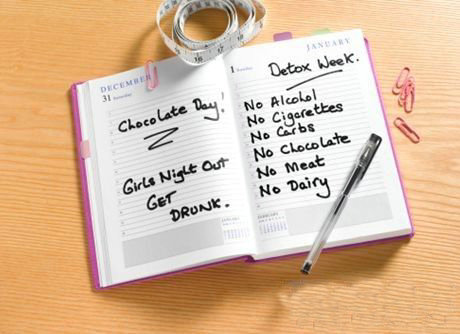 DECEMBER
31 Saturday
Chocolate Day!
Girls Night Out
GET
DRUNK.
JANUARY
1 Sunday
Detox Week.
No Alcohol
No Cigarettes
No Carbs
No Chocolate
No Meat
No Dairy
JANUARY
FEBRUARY